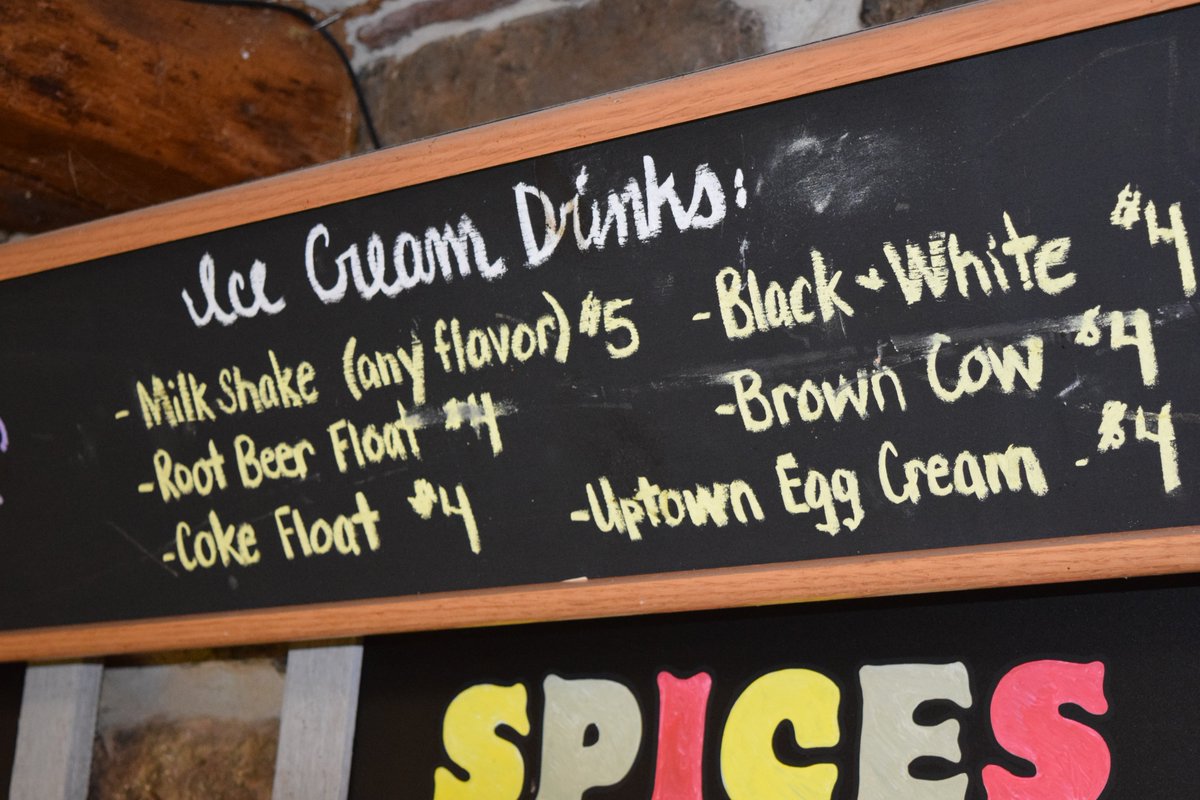 Ice Cream Drinks:
-Milkshake (any flavor) $5
-Root Beer Float $4
-Coke Float $4
-Black & White $4
-Brown Cow $4
-Uptown Egg Cream - $4
SPICES